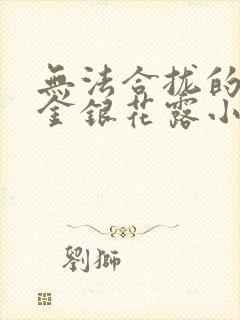 無法合拢的
金銀花露小
劉獅